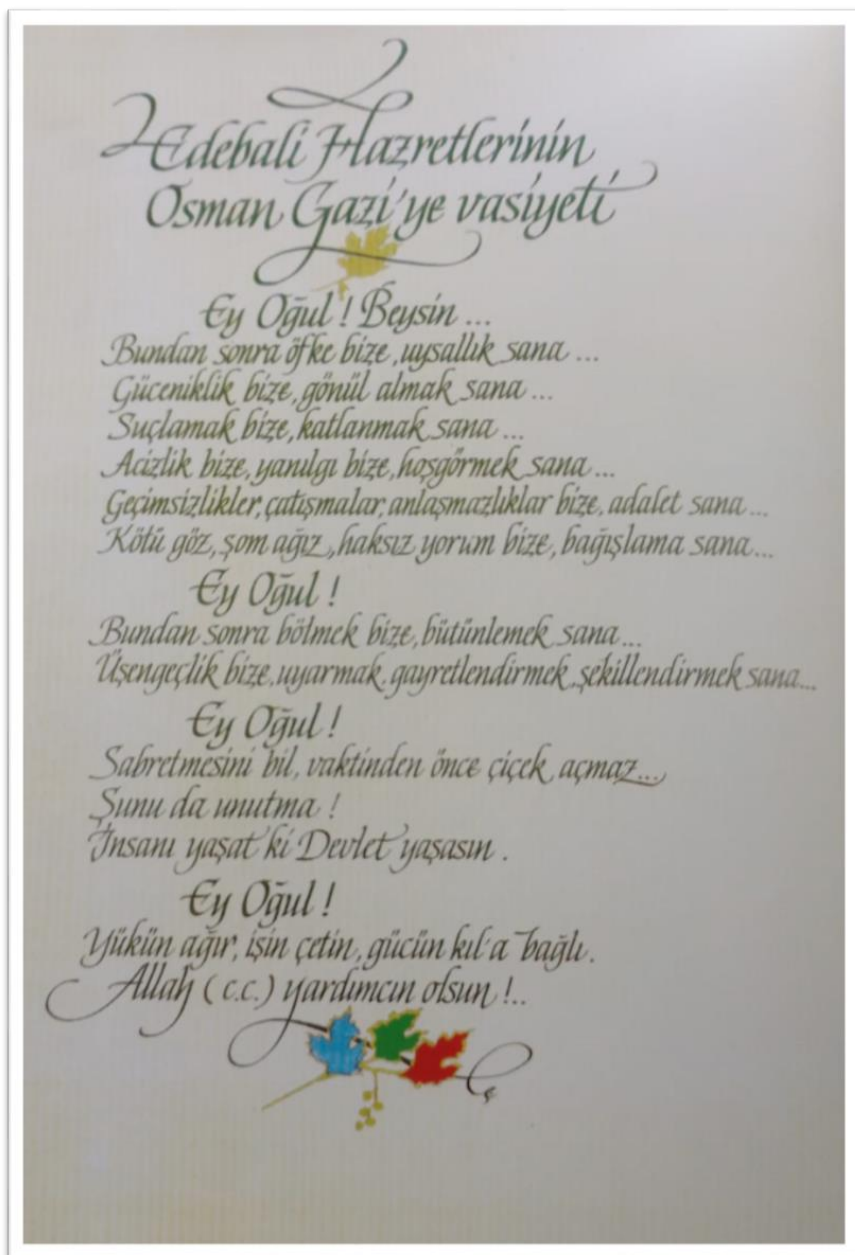 Edebali Hazretlerinin
Osman Gazi'ye vasiyeti
Ey Oğul ! Beysin ...
Bundan sonra öfke bize, uysallık sana ...
Güceniklik bize, gönül almak sana ...
Suçlamak bize, katlanmak sana ...
Acizlik bize, yanılgı bize, hoşgörmek sana ...
Geçimsizlikler, çatışmalar, anlaşmazlıklar bize, adalet sana ...
Kötü göz, şom ağız, haksız yorum bize, bağışlama sana...
Ey Oğul !
Bundan sonra bölmek bize, bütünlemek sana...
Üşengeçlik bize, uyarmak, gayretlendirmek, şekillendirmek sana...
Ey Oğul !
Sabretmesini bil, vaktinden önce çiçek açmaz...
Şunu da unutma !
İnsanı yaşat ki Devlet yaşasın .
Ey Oğul !
Yükün ağır, işin çetin, gücün kıl'a bağlı.
Allah ( c.c. ) yardımcın olsun !..